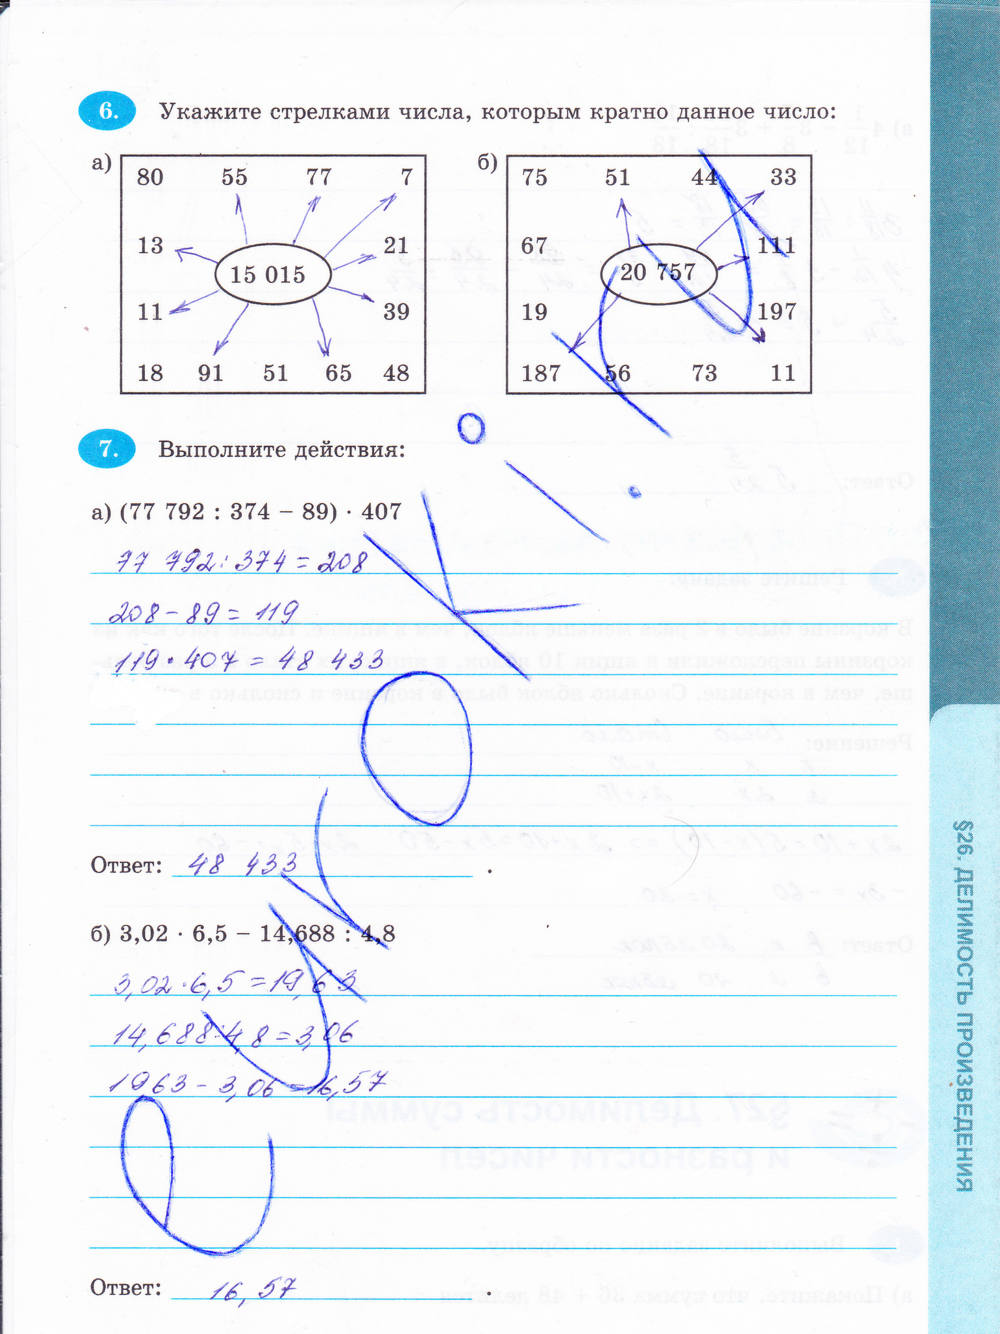 6. Укажите стрелками числа, которым кратно данное число:
а) 80 55 77 7
13 21
15 015
11 39
18 91 51 65 48
б) 75 51 44 33
67 111
20 757
19 197
187 56 73 11
7. Выполните действия:
а) (77 792 : 374 – 89) · 407
77 792 : 374 = 208
208 – 89 = 119
119 · 407 = 48 433
Ответ: 48 433 .
б) 3,02 · 6,5 – 14,688 : 4,8
3,02 · 6,5 = 19,63
14,688 : 4,8 = 3,06
1963 – 3,06 = 16,57
Ответ: 16,57 .
§26. ДЕЛИМОСТЬ ПРОИЗВЕДЕНИЯ